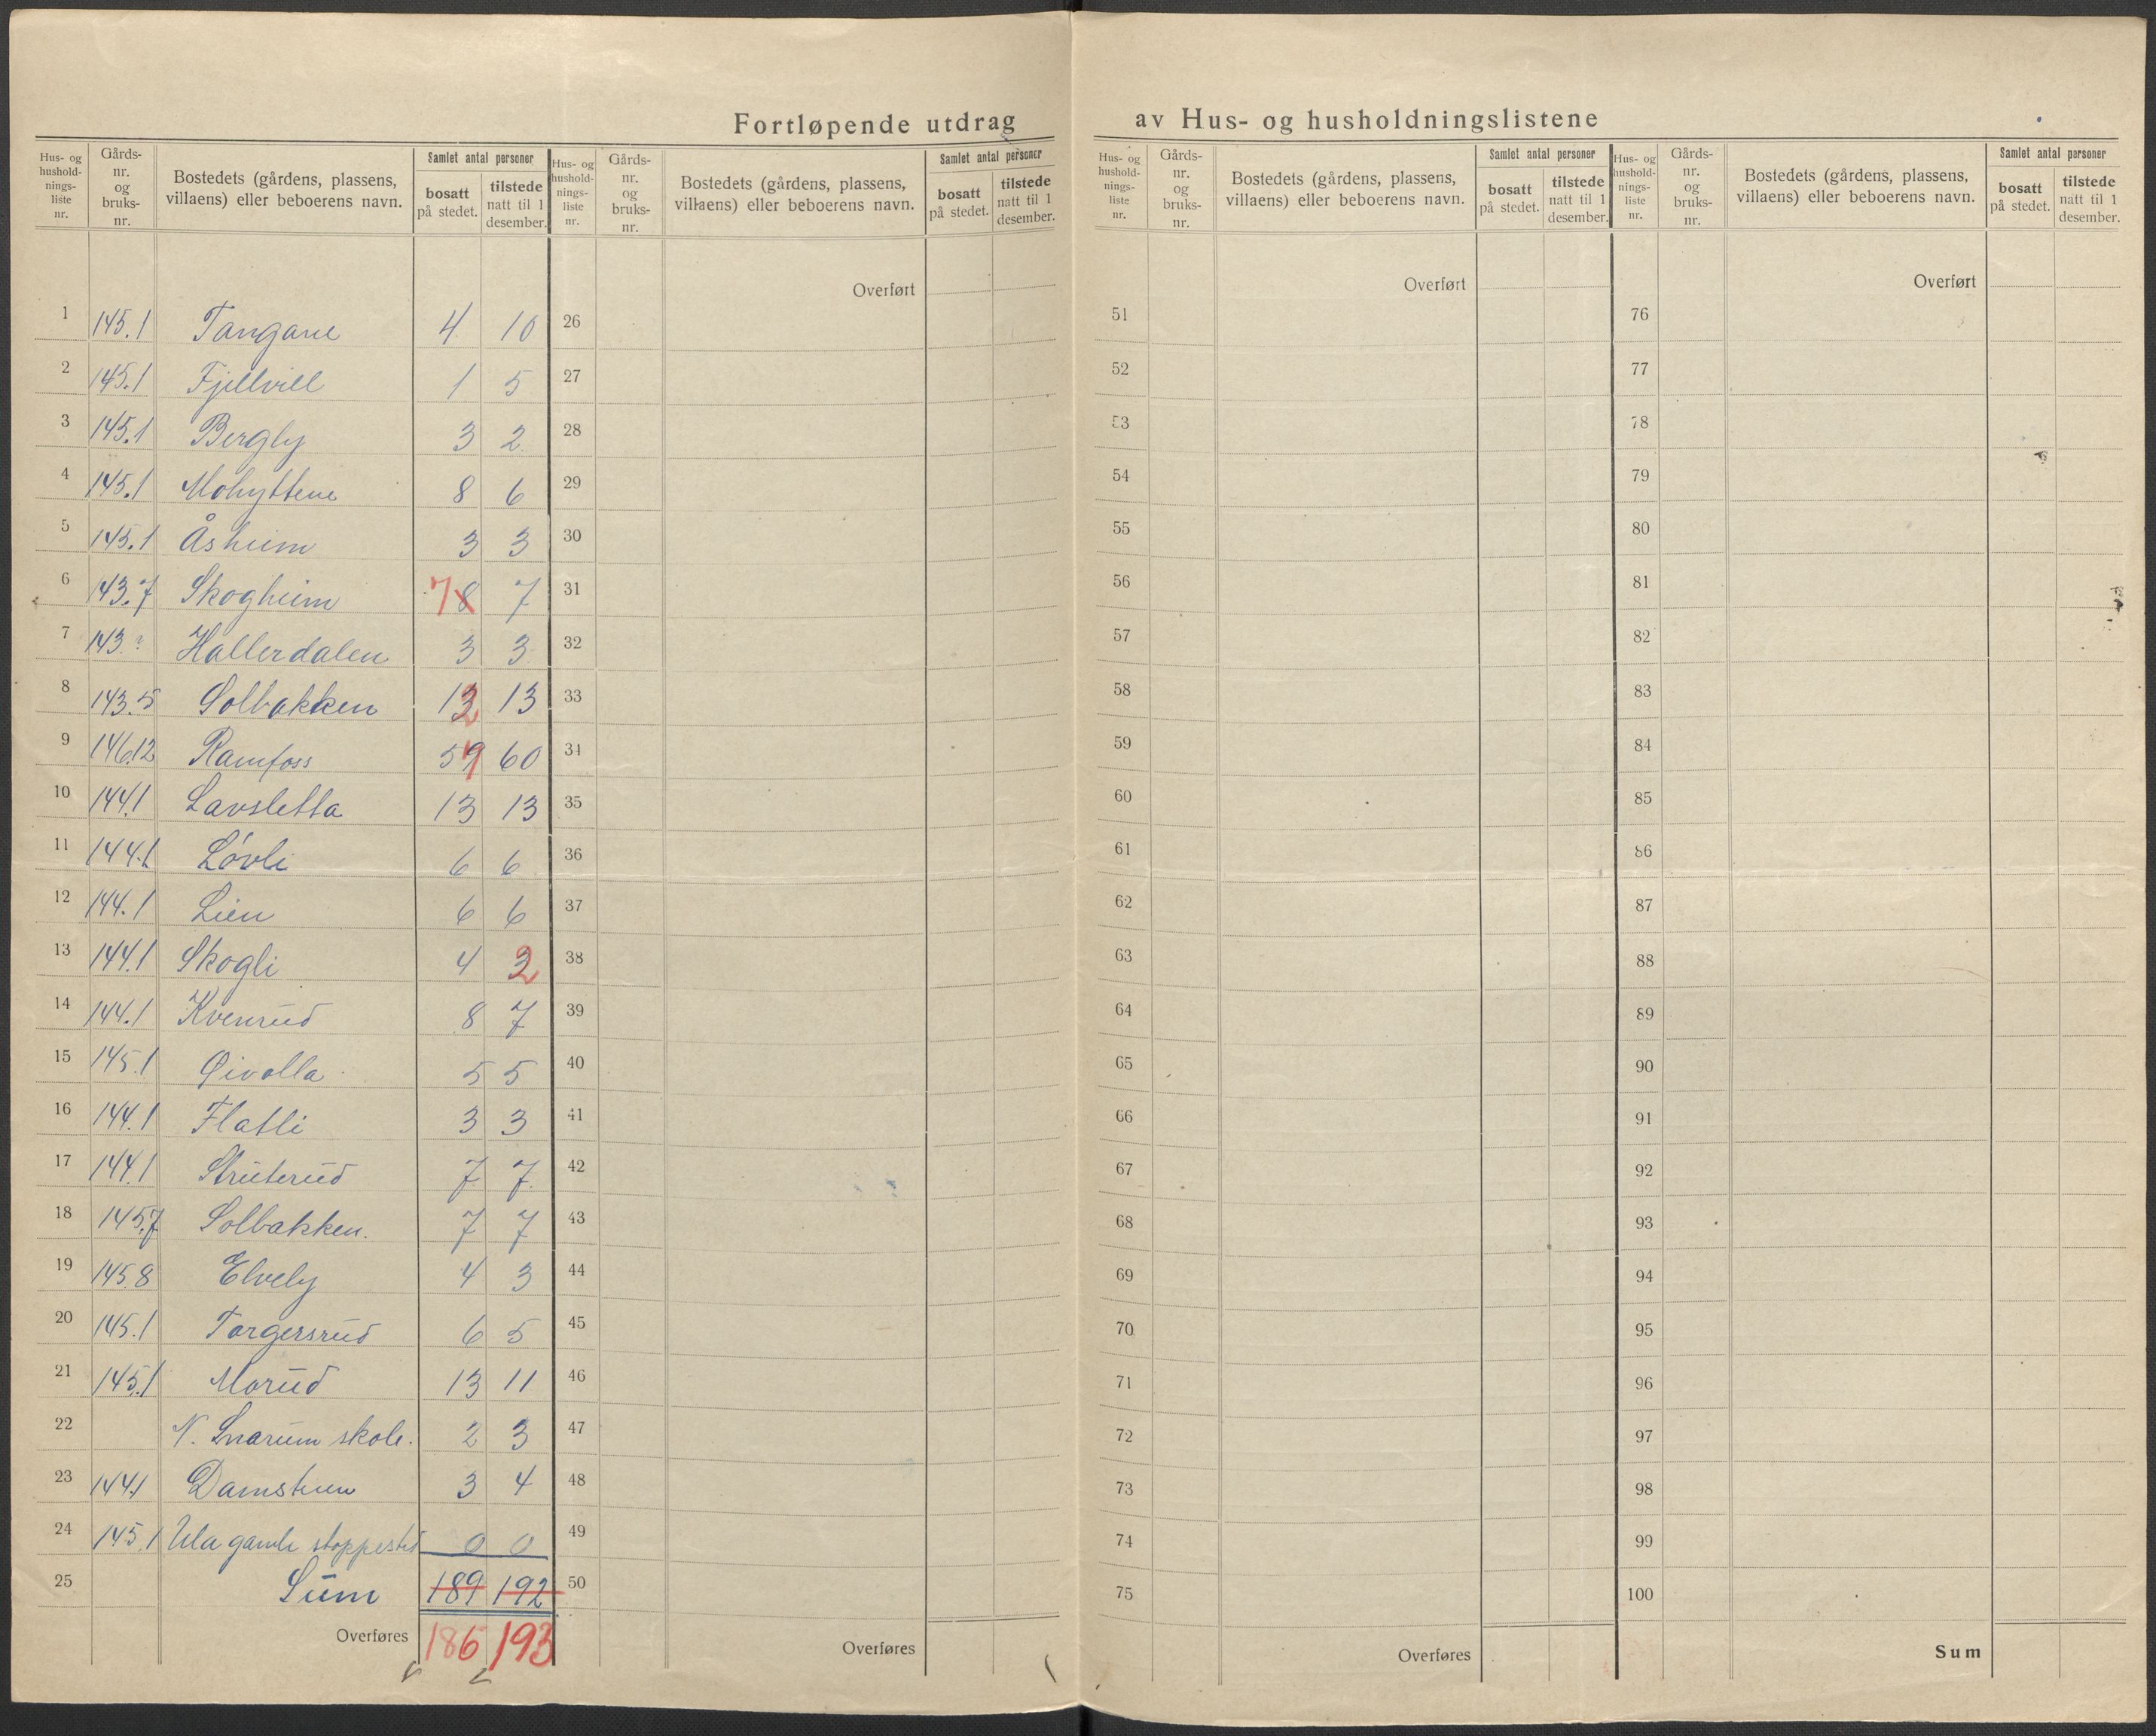 Fortløpende utdrag av Hus- og husholdningslistene
Hus- og hushold-nings-liste nr. Gårds-nr. og bruks-nr. Bostedets (gårdens, plassens, villaens) eller beboerens navn. Samlet antal personer bosatt på stedet. tilstede natt til 1 desember.
Hus- og hushold-nings-liste nr. Gårds-nr. og bruks-nr. Bostedets (gårdens, plassens, villaens) eller beboerens navn. Samlet antal personer bosatt på stedet. tilstede natt til 1 desember.
Hus- og hushold-nings-liste nr. Gårds-nr. og bruks-nr. Bostedets (gårdens, plassens, villaens) eller beboerens navn. Samlet antal personer bosatt på stedet. tilstede natt til 1 desember.
Hus- og hushold-nings-liste nr. Gårds-nr. og bruks-nr. Bostedets (gårdens, plassens, villaens) eller beboerens navn. Samlet antal personer bosatt på stedet. tilstede natt til 1 desember.
Overført Overført Overført
1 145.1 Tangane 4 10 26 51 76
2 145.1 Fjellvill 1 5 27 52 77
3 145.1 Bergly 3 2 28 53 78
4 145.1 Mohyttene 8 6 29 54 79
5 145.1 Åsheim 3 3 30 55 80
6 143.7 Skogheim 7 8 7 31 56 81
7 143.? Hallerdalen 3 3 32 57 82
8 143.5 Solbakken 12 13 33 58 83
9 146.12 Ramfoss 57 60 34 59 84
10 144.1 Lavsletta 13 13 35 60 85
11 144.1 Lóvli 6 6 36 61 86
12 144.1 Lien 6 6 37 62 87
13 144.1 Skogli 4 2 38 63 88
14 144.1 Kvenrud 8 7 39 64 89
15 145.1 Øivolla 5 5 40 65 90
16 144.1 Flatli 3 3 41 66 91
17 144.1 Struterud 7 7 42 67 92
18 145.7 Solbakken. 7 7 43 68 93
19 145.8 Elvely 4 3 44 69 94
20 145.1 Torgersrud 6 5 45 70 95
21 145.1 Morud 13 11 46 71 96
22 N. Snarum skole. 2 3 47 72 97
23 144.1 Damstuen 3 4 48 73 98
24 145.1 Ula gamle stoppested 0 0 49 74 99
25 Sum 189 192 50 75 100
Overføres 186 193 Overføres Overføres Sum